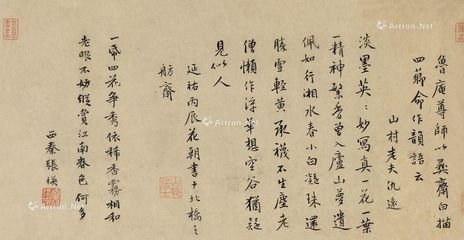 魯庵尊師以彝齋白描
四薌命作韻語云
山村老夫仇遠
淡墨英〻妙寫真一花一葉
一精神繁香曾入廬山夢遺
佩如行湘水春小白凝珠還
勝雪輕黃承襪不生塵老
僧懶作浮華想空谷猶疑
見似人
延祐丙辰花朝書于北橋之
舫齋
一卷四花爭秀依稀香霧相和
老眼不妨縱賞江南春色何多
西秦張楧
Artron.Net